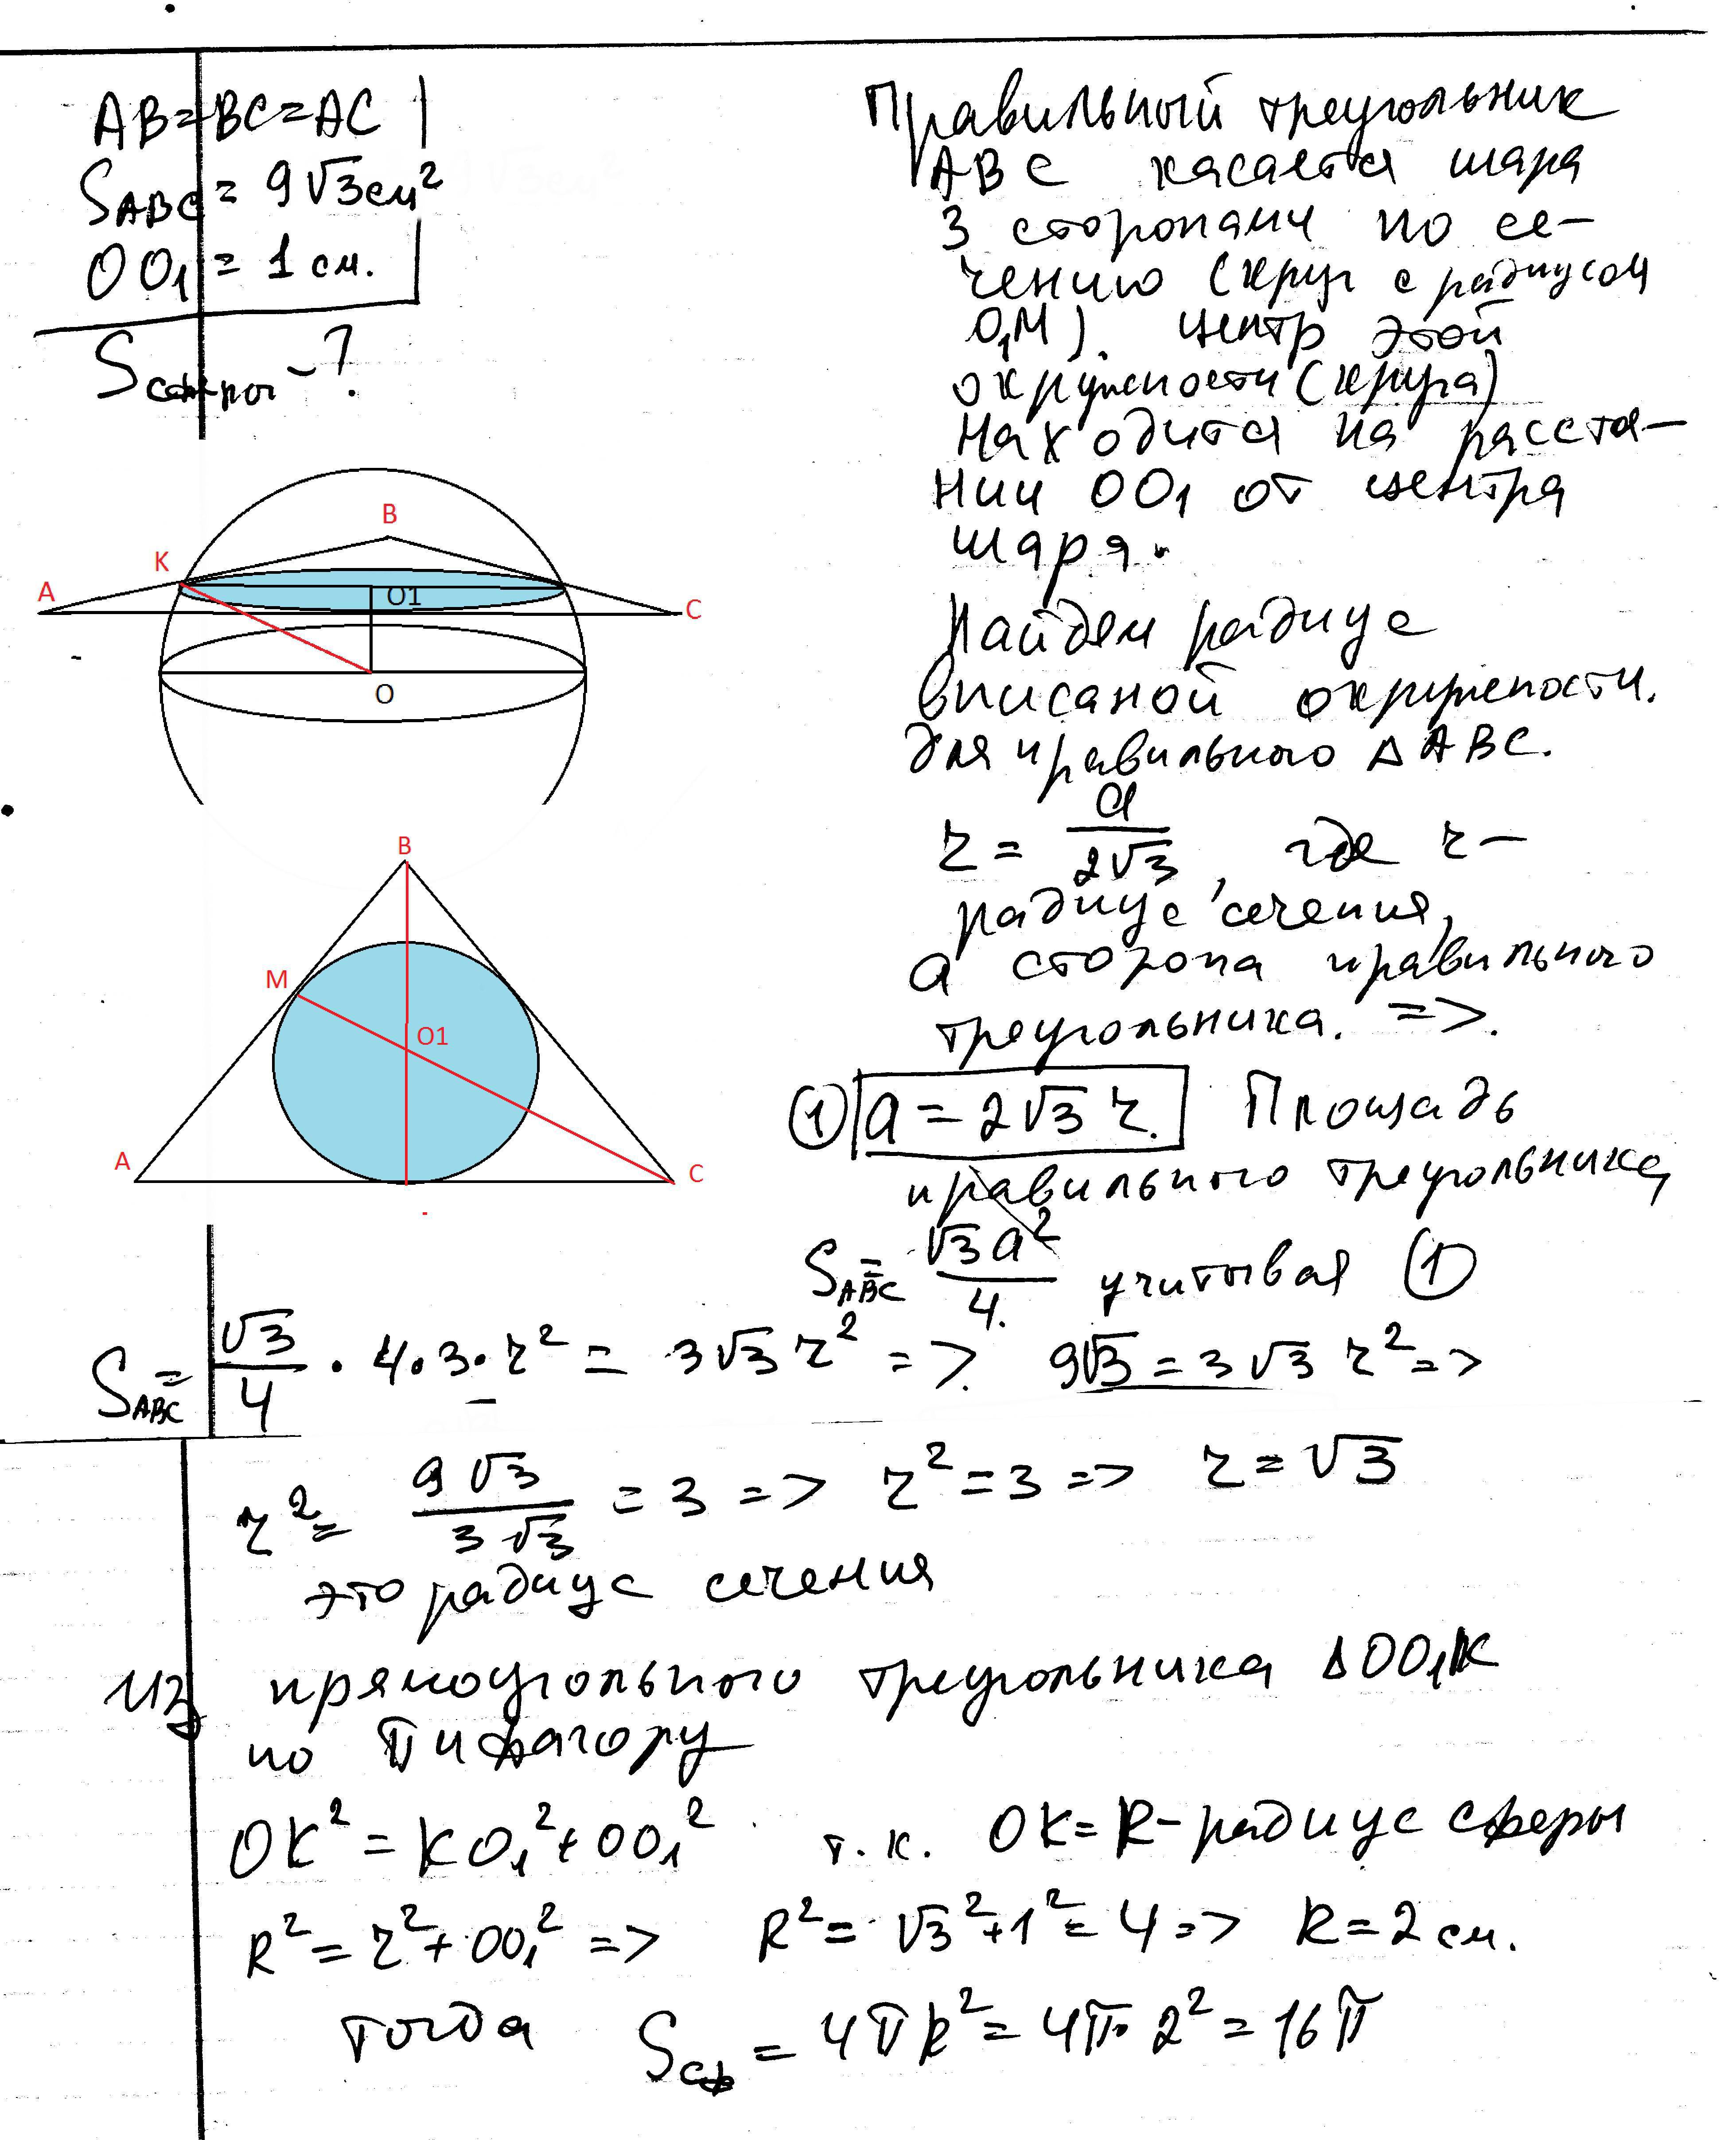 AB=BC=AC
S_ABC = 9√3 см²
OO₁ = 1 см.
S сферы - ?
Правильный треугольник
ABC касается шара
3 сторонами по се-
чению (круг с радиусом
O₁M). Центр этой
окружности (круга)
находится на расстоя-
нии OO₁ от центра
шара.
B
K
A
O1
C
O
Найдем радиус
вписаной окружности.
для правильного Δ ABC.
r = a/(2√3), где r –
радиус сечения,
a сторона правильного
треугольника. =>.
① a = 2√3 r. Площадь
правильного треугольника
B
M
O1
A
C
S_ABC = √3a²/4. учитывая ①
S_ABC = √3/4 · 4·3·r² = 3√3 r² => 9√3 = 3√3 r² =>
r² = 9√3/(3√3) = 3 => r² = 3 => r = √3
это радиус сечения
Из прямоугольного треугольника ΔOO₁K
по Пифагору
OK² = KO₁² + OO₁² т.к. OK = R - радиус сферы
R² = r² + OO₁² => R² = √3² + 1² = 4 => R = 2 см.
тогда S сф = 4πR² = 4π·2² = 16π